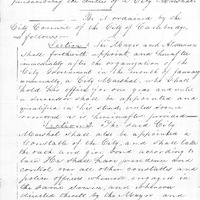 prescribing the duties of a City Marshal.
Be it Ordained by the
City Council of the City of Cambridge,
as follows:
Section 1. The Mayor and Aldermen
shall appoint and
immediately after the organization of the
City Government in the month of January
annually a City Marshal, who shall
hold his office for one year and until
a successor shall be appointed and
qualified in his stead, unless sooner
removed as is hereinafter provided.
Section 2. The said City
Marshal shall also be appointed a
Constable of the City, and shall take
the oath and give bond according to
law. He shall have precedence and
control over all other constables and
police officers whenever engaged in
the same service, and whenever
directed thereto by the Mayor and